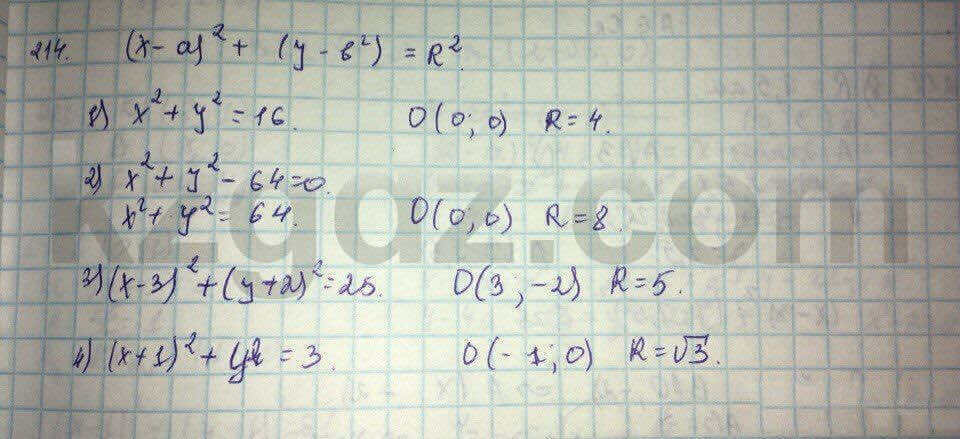 214. (x-a)² + (y-b²) = R².
1) x² + y² = 16. O(0; 0) R=4.
2) x² + y² - 64=0.
x² + y² = 64. O(0; 0) R=8.
3) (x-3)² + (y+2)² = 25. O(3; -2) R=5.
4) (x+1)² + y² = 3. O(-1; 0) R=√3.
kzgdz.com